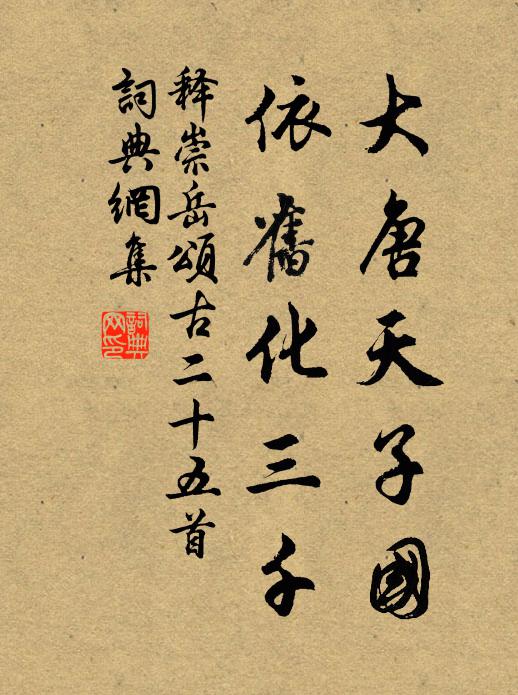 大唐天子國
依舊化三千
释崇岳頌古二十五首
詞典網集
詞典網印